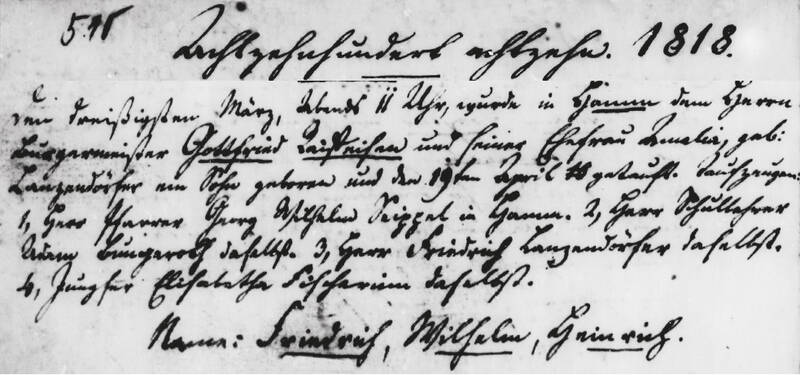 Achtzehnhundert achtzehn. 1818.
Den dreißigsten März, Abends 11 Uhr, wurde in Hamm dem Herrn
Burgermeister Gottfried Raiffeisen und seiner Ehefrau Amalia, geb:
Lanzendörfer ein Sohn geboren und den 19ten April getauft. Taufzeugen:
1, Herr Pfarrer Georg Wilhelm Seippel in Hamm. 2, Herr Schullehrer
Adam Bungeroth daselbst. 3, Herr Friedrich Lanzendörfer daselbst.
4, Jungfer Elisabetha Fischerinn daselbst.
Name: Friedrich, Wilhelm, Heinrich.